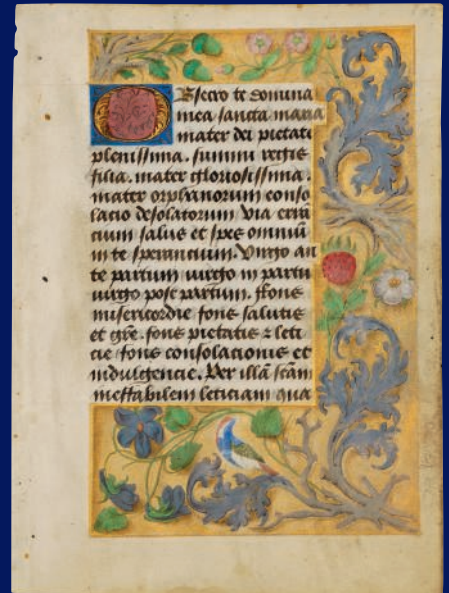 Obsecro te domina
mea sancta maria
mater dei pietate
plenissima. summi regis
filia. mater gloriosissima.
mater orphanorum conso
lacio desolatorum via erran
cium salus et spes omniū
in te sperancium. Virgo an
te partum virgo in partu
virgo post partum. ffons
misericordie fons salutis
et gr̄e. fons pietatis ⁊ leti
cie fons consolacionis et
indulgencie. Per illā scām
ineffabilem leticiam qua